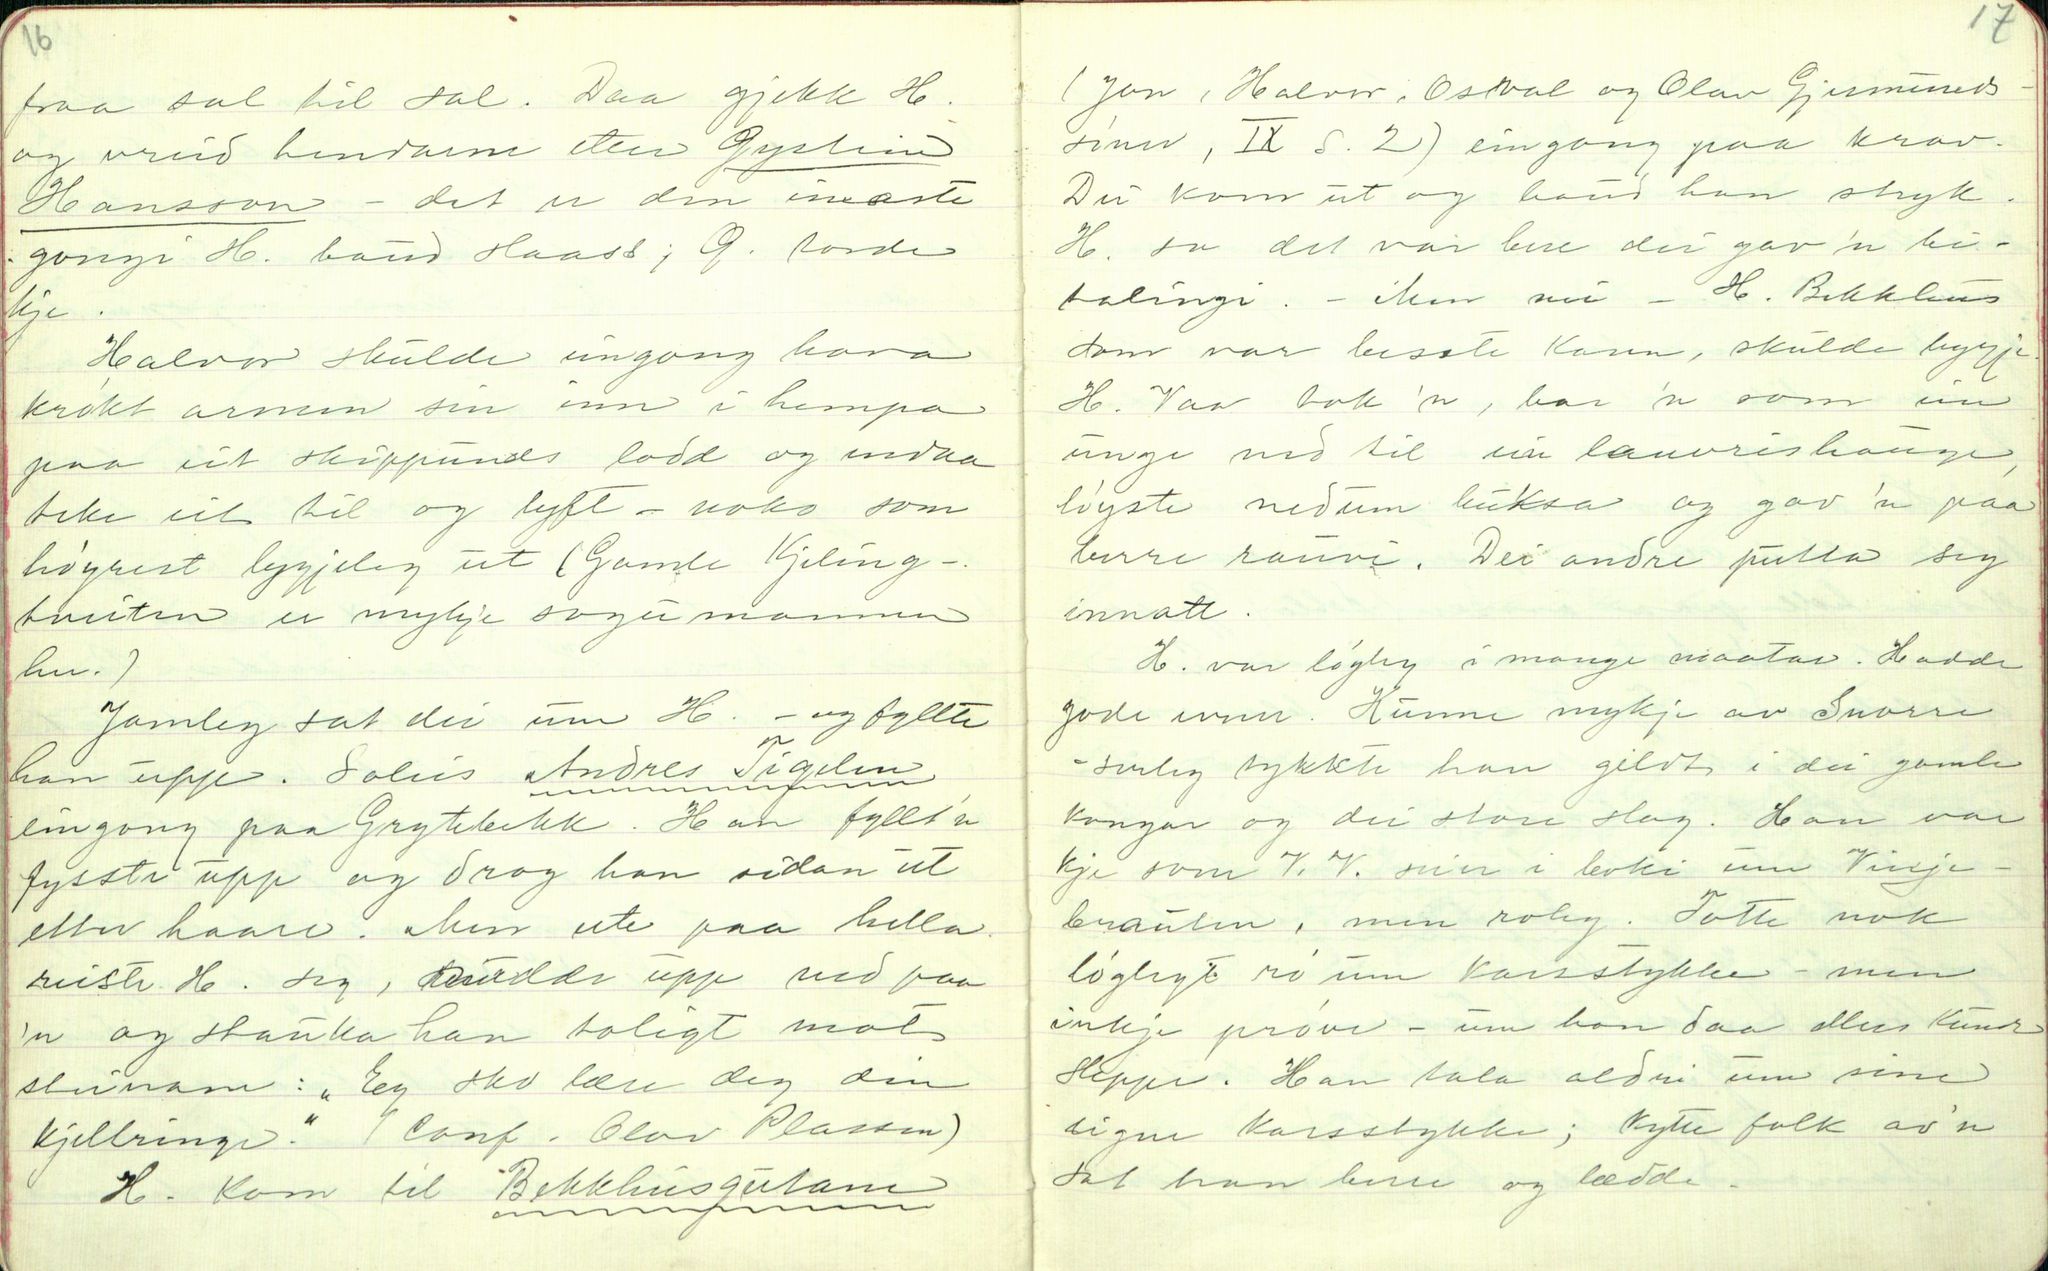 16
fraa sal til sal. Daa gjekk H.
og vreid hendarne etter Øystein
Hansson - det er den einaste
gongji H. baud slaast; Ø. torde
kje.
Halvor skulde eingong hava
krøkt armen sin inn i hempa
paa eit skippunds lodd og endaa
teke eit til og lyft - noko som
høyrest byggjeleg ut (Gamle Kjeling-
tveiten er mykje sogumannen
her.)
Jamleg sat dei um H. - og fyllte
han uppe. Soleis Andres Tigelen
eingong paa Grytebekk. Han fyllt'n
fysste upp og drog han sidan ut
etter haare. Men ute paa hella
reiste H. seg, snudde upp ned paa
'n og stauka han toligt mot
steinane: "Eg sko lære deg din
kjellringe." (Conf. Olav Plassen)
H. kom til Bekkhusgutane
17
(Jon, Halvor, Osval og Olav Gjermunds-
søner, IX s. 2) eingong paa krav.
Dei kom ut og baud han stryk.
H. sa det var bere dei gav'n be-
talingi. - Men nei - H. Bekkhus
som var besste karen, skulde byggje.
H. Vaa tok 'n, bar 'n som ein
unge ned til ein lauvrishauge,
løyste nedum buksa og gav 'n paa
berre rauvi. Dei andre putta seg
innatt.
H. var løgleg i mange maatar. Hadde
gode evner. Kunne mykje av Snorre
- serleg tykkte han gildt i dei gamle
kongar og dei store slag. Han var
kje som V. V. seier i boki um Vinje-
brauten, men roleg. Totte nok
løglegt rø um karsstykke - men
inkje prøve - um han daa elles kunde
sleppe. Han tala aldri um sine
eigne karsstykke; kytte folk av'n
sat han berre og lædde.